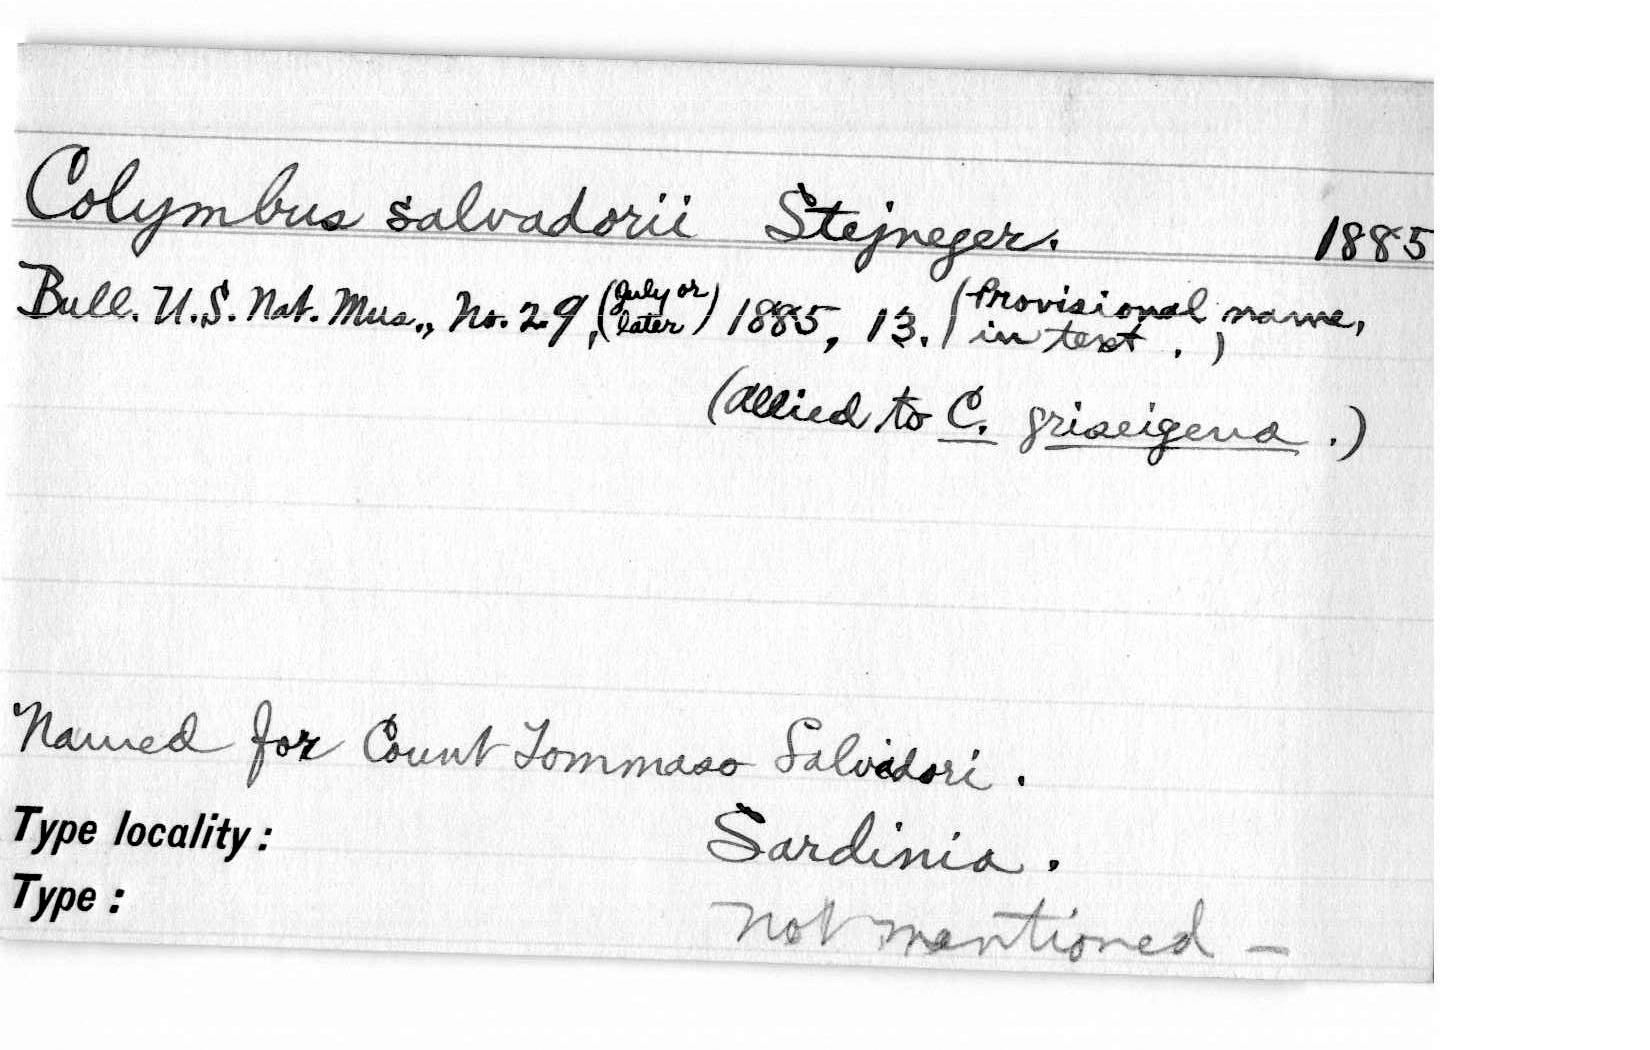 Colymbus salvadorii Stejneger. 1885
Bull. U.S. Nat. Mus., No. 29, (July or later) 1885, 13. (Provisional name, in text.)
(Allied to C. griseigena.)
Named for Count Tommaso Salvadori.
Type locality: Sardinia.
Type: not mentioned –